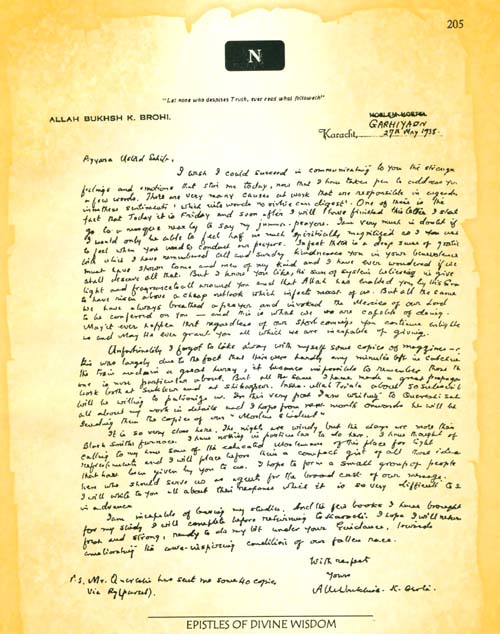 205
N
"Let none who despises Truth, ever read what followeth"
ALLAH BUKHSH K. BROHI.
GARHIYASIN
Karachi, 27th May 1938.
I wish I could succeed in communicating to you the strange
feelings and emotions that stir me today, now that I have taken pen to address you
a few words. There are very many causes at work that are responsible in
these sentiments 'which words no can digest'. One of them is the
fact that Today it is Friday and soon after I will have finished this letter I shall
go to a near by to say my prayers. I am very much in doubt if
I would only be able to feel half as much spiritually magnetised as I was
to feel when you used to conduct our prayers. In fact there is a deep sense of
with which I have remembered all and
must have shown some and men of my kind and I have even wondered if we
shall deserve all that. But I know you like, the sun of
light and fragrance all around you and that Allah has enabled you by His
to have risen above a cheap outlook which infect most of us. But all the same
we have always breathed a prayer and invoked the Mercies of our Lord
to be conferred on you — and this is what we are capable of doing.
May it ever happen that regardless of our short comings you continue
us and May He ever grant you all which we are incapable of giving.
Unfortunately I forgot to take away with myself some copies of magazine —
this was largely due to the fact that there were hardly any minutes left in
the train and in a great hurry, it became impossible to remember those
one is most particular about. But all the same I have made a great
work both at Sukkur and at Shikarpur. Insha-allah Taiala about 50
will be willing to patronize us. In this very post I am writing to Quereshi
all about my work in details and I hope from next month onwards he will be
sending them the copies of our "
It is so very close here. The nights are windy but the days are more than
Black smiths furnace. I have nothing in particular to do here. I have thought of
calling to my house some of the educated of this place for light
refreshments and I will place before them a compact gist of all those ideas
that have been given by you to us. I hope to form a small group of people
here who should serve us as agents for the broad cast of our message.
I will write to you all about their response while it is so very difficult to
in advance.
I am incapable of leaving my studies. And the few books I have brought
for my study I will complete before returning to Karachi. I hope I will return
fresh and strong, ready to do my bit under your Guidance, towards
ameliorating the awe-inspiring condition of our fallen race.
With respect
Yours
Allahbukhsh. K. Brohi.
P.S. Mr. Quereshi has sent me some 40 copies
via Rly(parcel).
EPISTLES OF DIVINE WISDOM